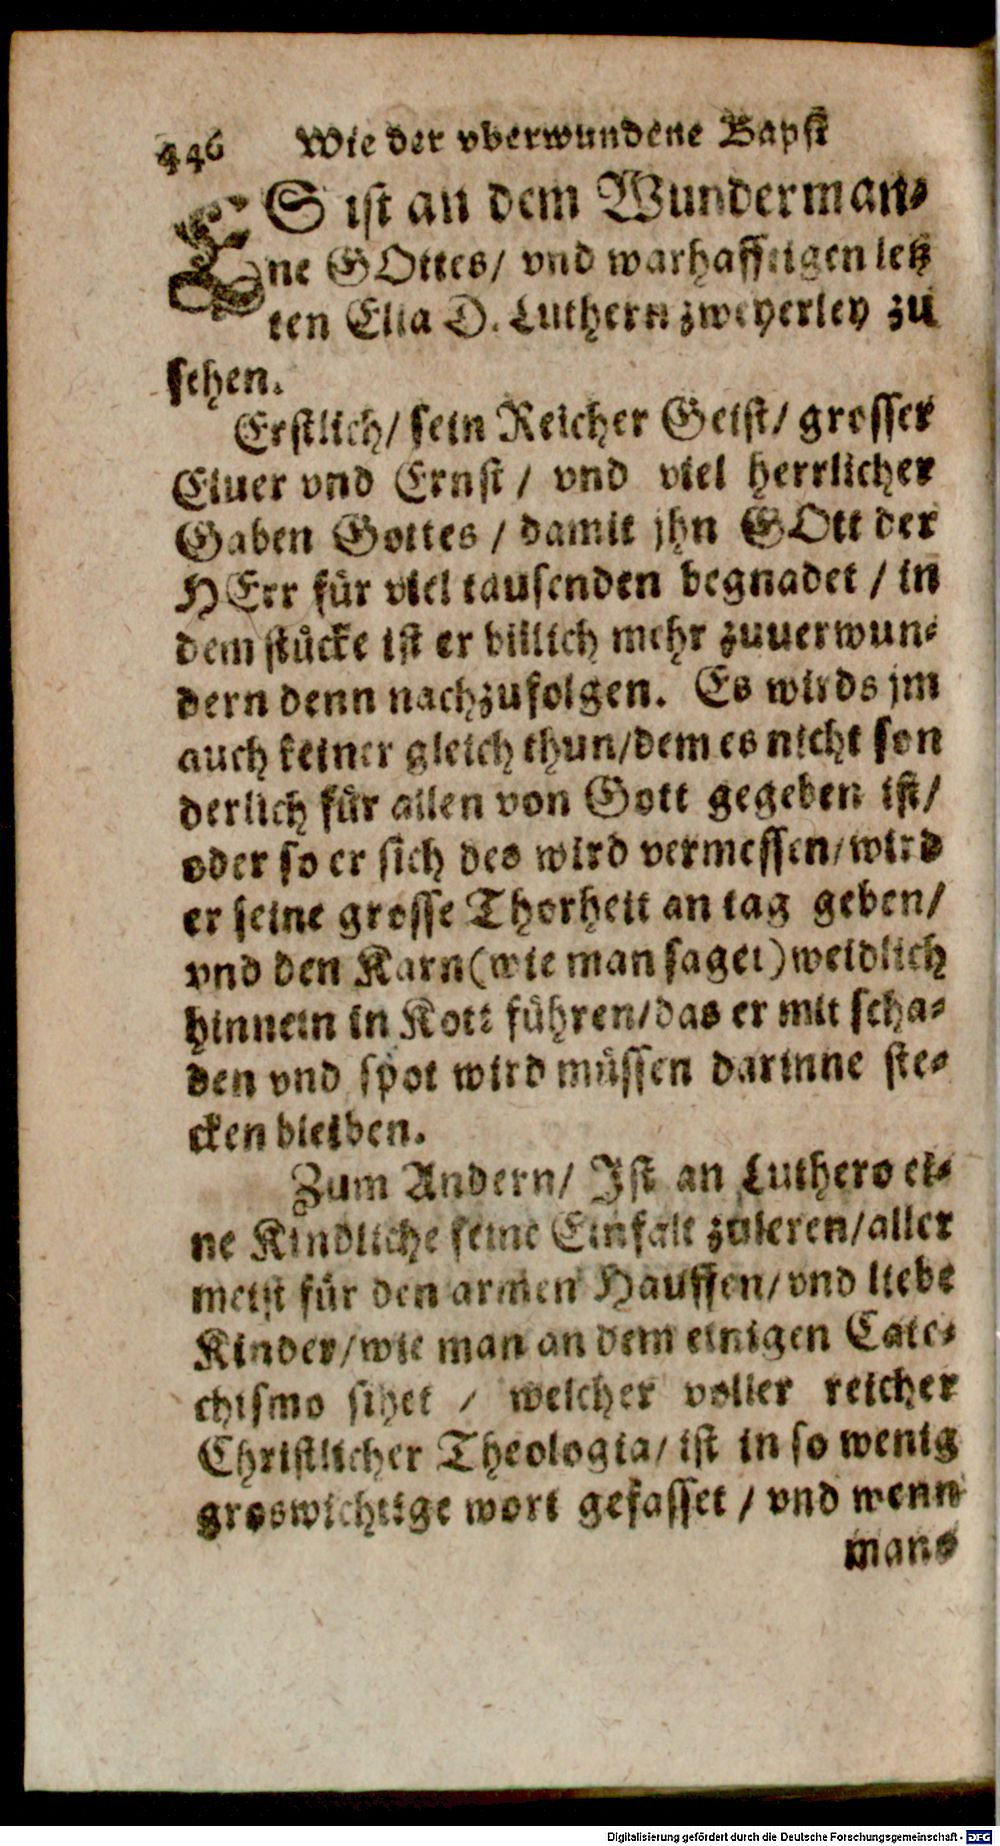 446 Wie der vberwundene Bapst
ES ist an dem Wunderman-
ne GOttes/ vnd warhafftigen letz
ten Elia D. Luthern zweyerley zu
sehen.
Erstlich/ sein Reicher Geist/ grosser
Eiuer vnd Ernst / vnd viel herrlicher
Gaben Gottes / damit jhn GOtt der
HErr für viel tausenden begnadet / in
dem stücke ist er billich mehr zuuerwun-
dern denn nachzufolgen. Es wirds jm
auch keiner gleich thun/dem es nicht son
derlich für allen von Gott gegeben ist/
oder so er sich des wird vermessen/wird
er seine grosse Thorheit an tag geben/
vnd den Karn(wie man saget)weidlich
hinnein in Kott führen/das er mit scha-
den vnd spot wird müssen darinne ste-
cken bleiben.
Zum Andern/ Ist an Luthero ei-
ne Kindliche feine Einfalt zuleren/aller
meist für den armen Hauffen/vnd liebe
Kinder/wie man an dem einigen Cate-
chismo sihet / welcher voller reicher
Christlicher Theologia/ ist in so wenig
groswichtige wort gefasset / vnd wenn
mans
Digitalisierung gefördert durch die Deutsche Forschungsgemeinschaft - DFG